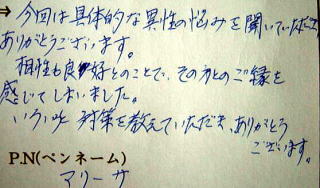 → 今回は具体的な異性の悩みを聞いていただき
ありがとうございます。
相性も良好とのことで、その方とのご縁を
感じてしまいました。
いろいろ対策を教えていただき、ありがとう
ございます。
P.N(ペンネーム)
マリーサ